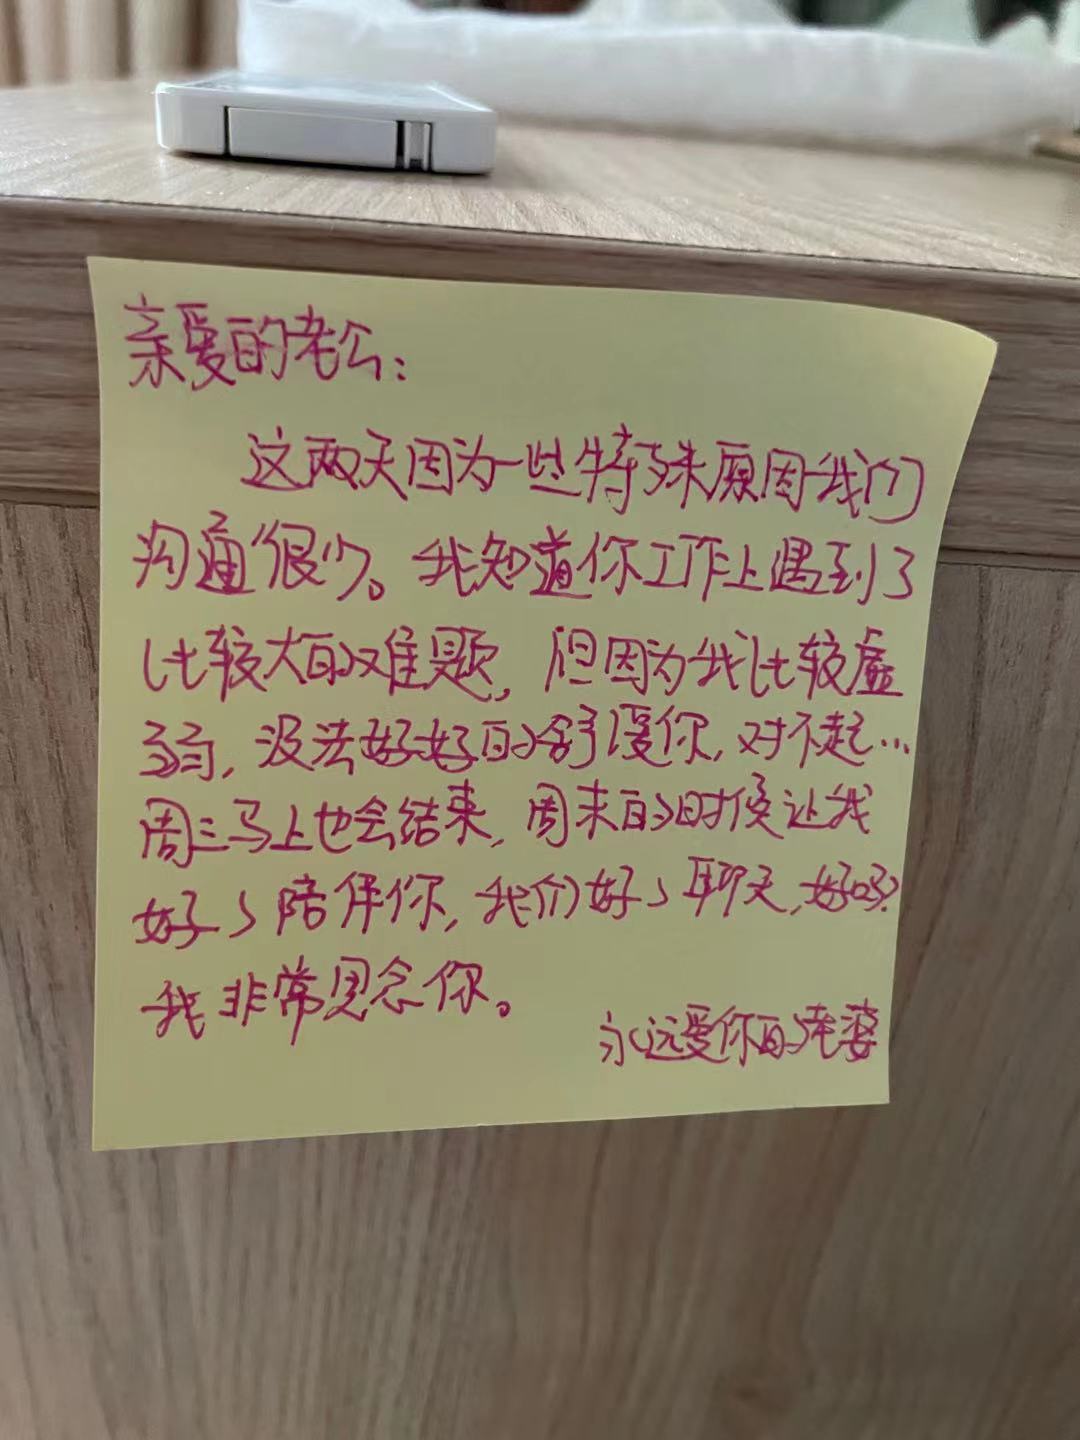 亲爱的老公：
这两天因为一些特殊原因我们
沟通很少。我知道你工作上遇到了
比较大的难题，但因为我比较虚
弱，没法好好的舒缓你，对不起…
周三马上也会结束，周末的时候让我
好好陪伴你，我们好好聊天，好吗？
我非常思念你。
永远爱你的老婆